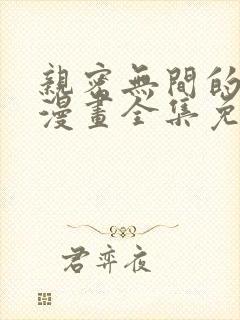 親密無間的
漫畫全集免
君弈夜